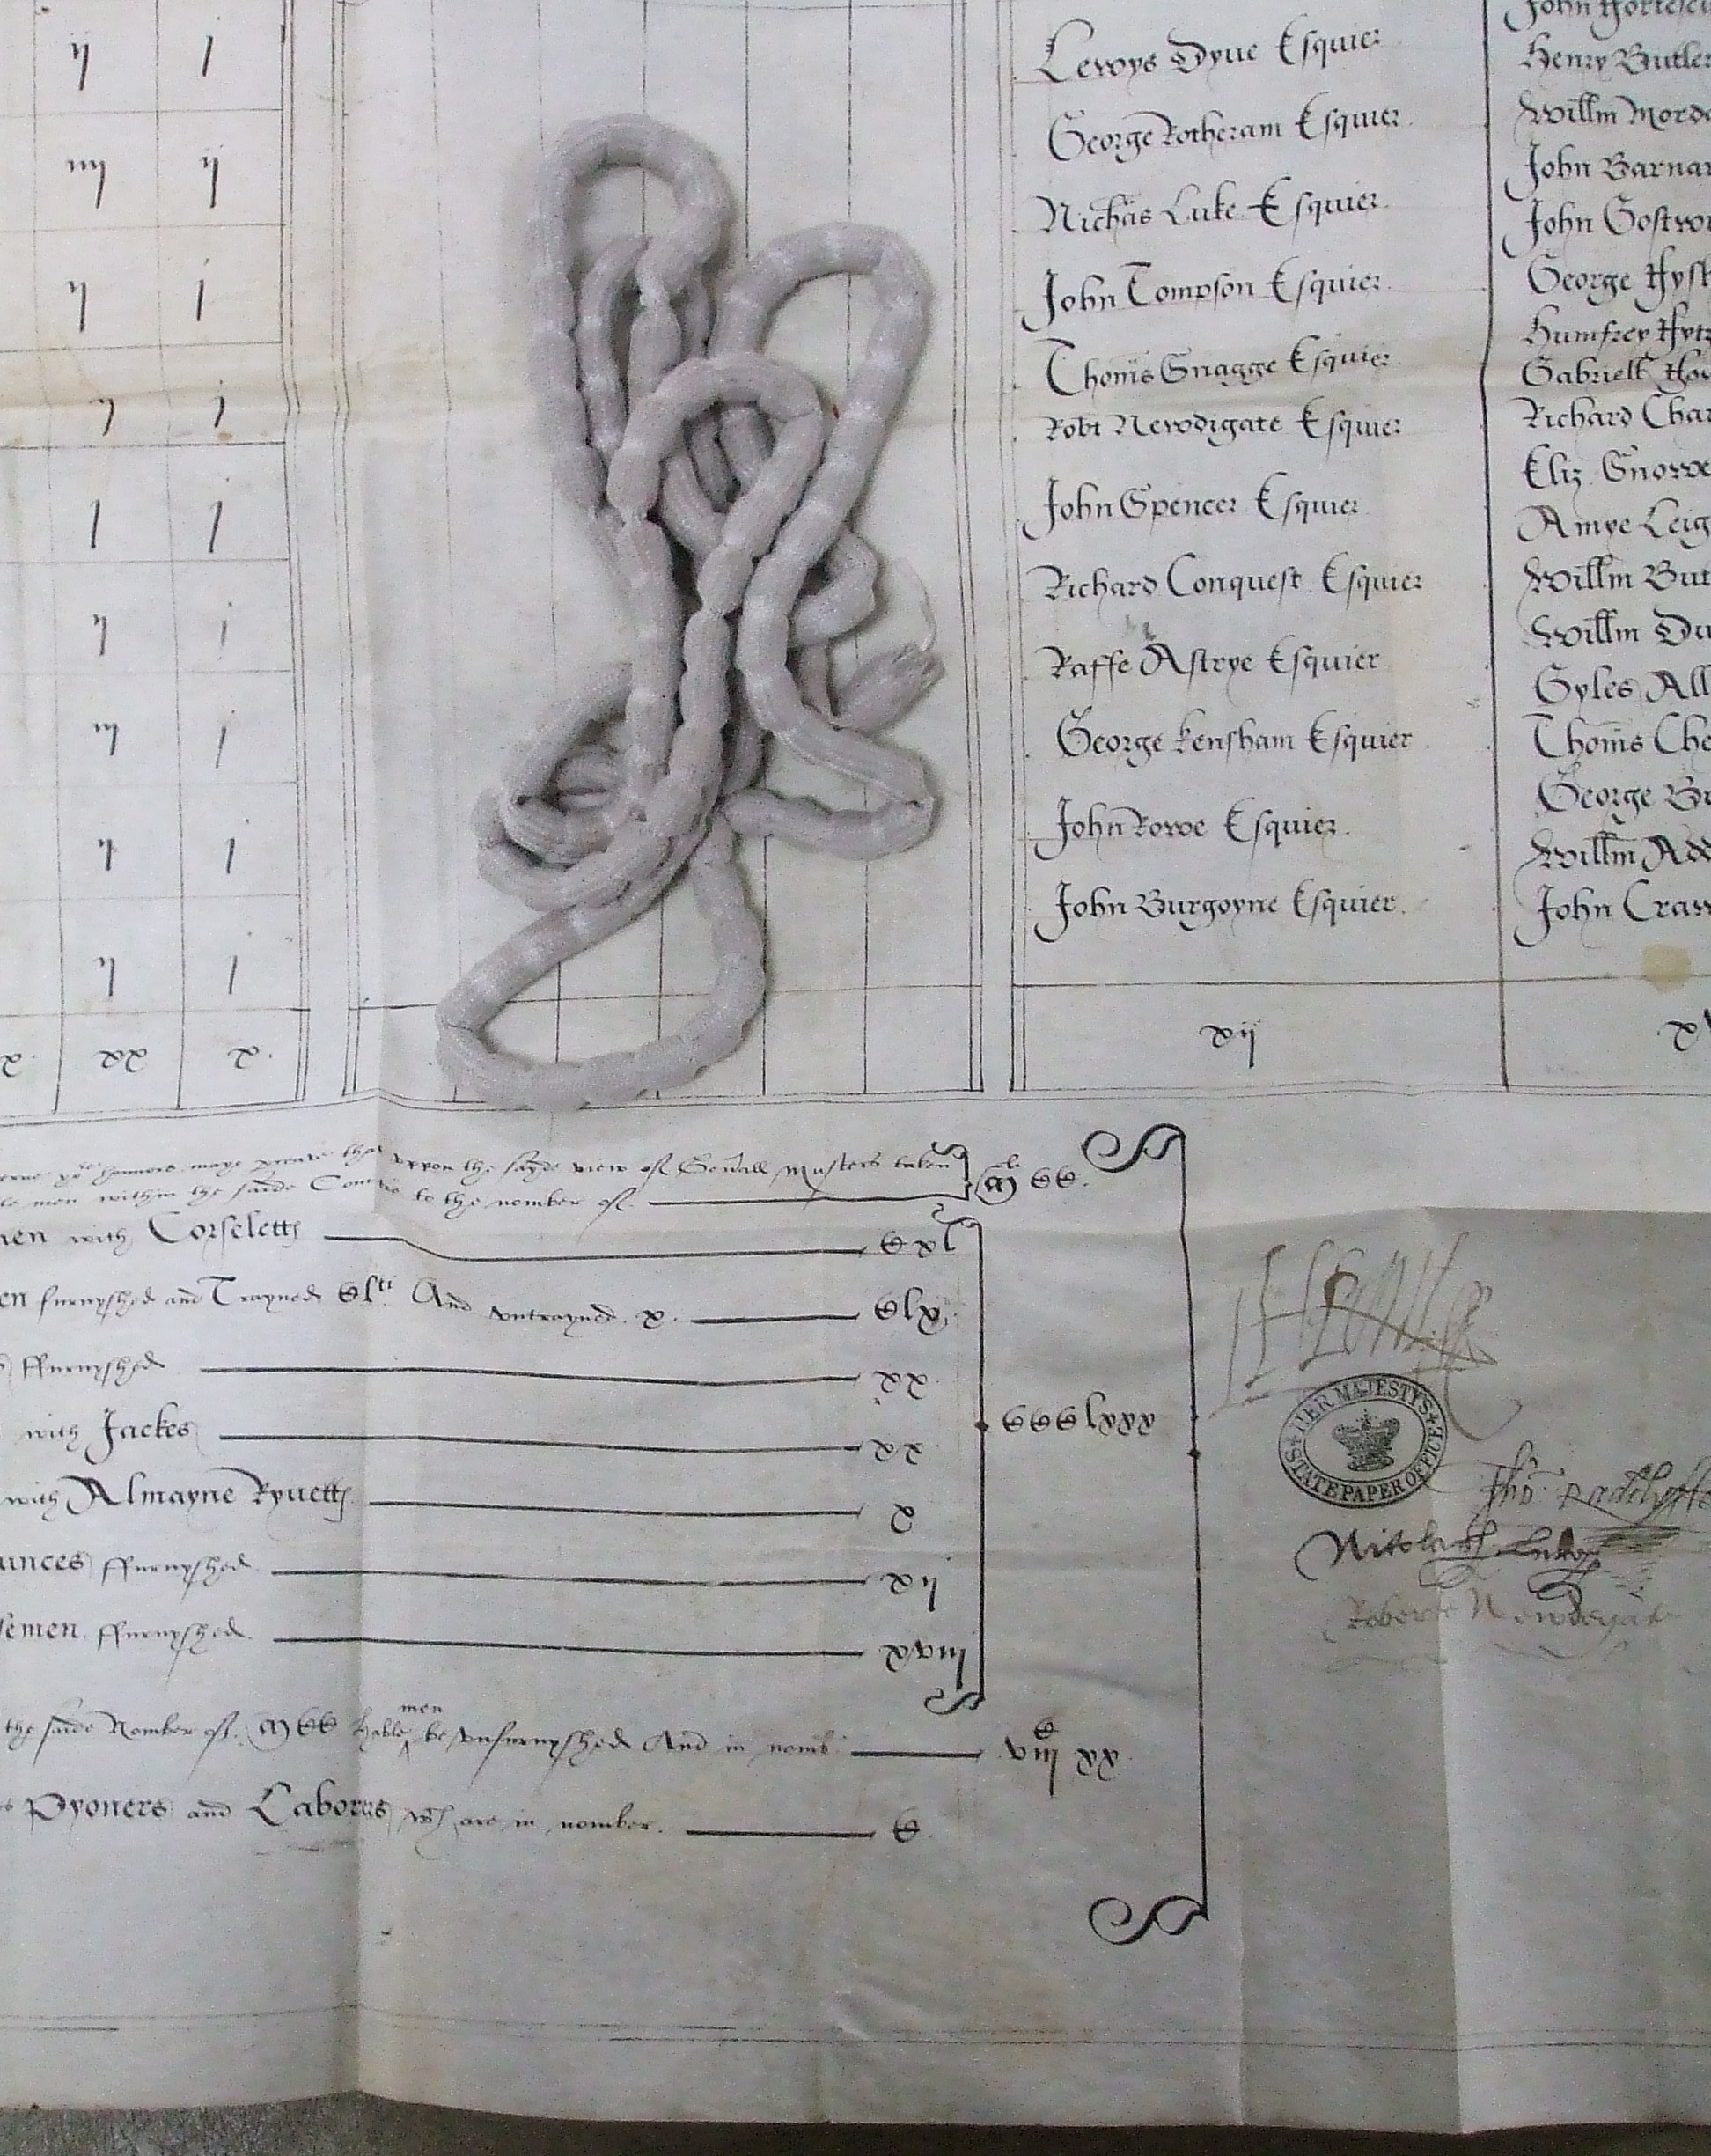 ij j
iiij ij
ij j
ij j
j j
ij j
iij j
ij j
ij j
x. xx x.
Lewys Dyue Esquier
George Rotheram Esquier.
Nichãs Luke Esquier.
John Tompson Esquier.
Thom̃s Snagge Esquier
Robt Newdigate Esquier
John Spencer Esquier
Richard Conquest. Esquier
Raffe Astrye Esquier
George Kensham Esquier
John Rowe Esquier.
John Burgoyne Esquier.
xij
John
Henry Butler
Willm̃
John Barnar
John Gostwo
George
Humfrey
Gabriell
Richard Char
Eliz. Snowe
Amye Leig
Willm̃ But
Willm̃ Du
Gyles All
Thom̃s Che
George Br
Willm̃ Add
John Craw
honnors maye that vppon the sayde view of Gen̄all Musters taken
le men within the saide to the nomber of. M CC.
men with Corseletts Cxl
en furnyshed and Trayned Clti. And vntrayned. x. Clx.
ffurnyshed xx.
with Jackes xx.
with Almayne Ryuetts x
unces ffurnyshed xij
semen. ffurnyshed. xviij
CCClxxx
the saide Nomber of. M CC hable men be vnfurnyshed And in nomb. viijC xx.
Pyoners and Labores wch are in nomber. C.
H Kent
HER MAJESTYS
STATE PAPER OFFICE
Tho. Radclyffe
Nicholas Luke
Roberte Newdegate